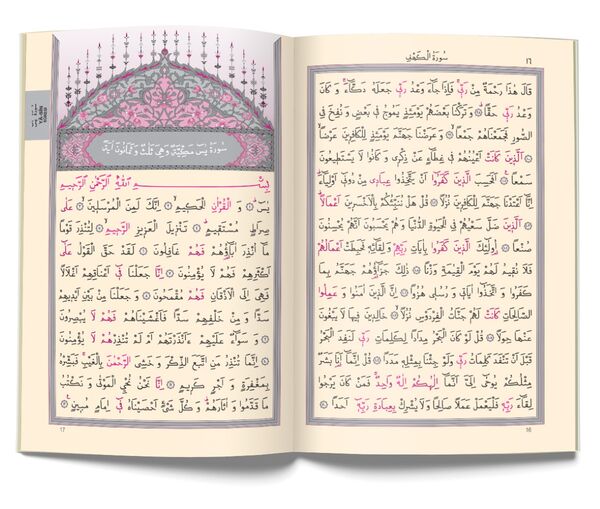 سورة الكهف
١٦
قَالَ هٰذَا رَحْمَةٌ مِنْ رَبّ۪ي فَاِذَا جَٓاءَ وَعْدُ رَبّ۪ي جَعَلَهُ دَكَّٓاءَ وَكَانَ
وَعْدُ رَبّ۪ي حَقًّا وَتَرَكْنَا بَعْضَهُمْ يَوْمَئِذٍ يَمُوجُ ف۪ي بَعْضٍ وَنُفِخَ فِي
الصُّورِ فَجَمَعْنَاهُمْ جَمْعًا وَعَرَضْنَا جَهَنَّمَ يَوْمَئِذٍ لِلْكَافِر۪ينَ عَرْضًا
اَلَّذ۪ينَ كَانَتْ اَعْيُنُهُمْ ف۪ي غِطَٓاءٍ عَنْ ذِكْر۪ي وَكَانُوا لَا يَسْتَط۪يعُونَ
سَمْعًا اَفَحَسِبَ الَّذ۪ينَ كَفَرُٓوا اَنْ يَتَّخِذُوا عِبَاد۪ي مِنْ دُون۪ٓي اَوْلِيَٓاءَ
اِنَّٓا اَعْتَدْنَا جَهَنَّمَ لِلْكَافِر۪ينَ نُزُلًا قُلْ هَلْ نُنَبِّئُكُمْ بِالْاَخْسَر۪ينَ اَعْمَالًا
اَلَّذ۪ينَ ضَلَّ سَعْيُهُمْ فِي الْحَيٰوةِ الدُّنْيَا وَهُمْ يَحْسَبُونَ اَنَّهُمْ يُحْسِنُونَ
صُنْعًا اُو۬لٰٓئِكَ الَّذ۪ينَ كَفَرُوا بِاٰيَاتِ رَبِّهِمْ وَلِقَٓائِه۪ فَحَبِطَتْ اَعْمَالُهُمْ
فَلَا نُق۪يمُ لَهُمْ يَوْمَ الْقِيٰمَةِ وَزْنًا ذٰلِكَ جَزَٓاؤُهُمْ جَهَنَّمُ بِمَا
كَفَرُوا وَاتَّخَذُٓوا اٰيَات۪ي وَرُسُل۪ي هُزُوًا اِنَّ الَّذ۪ينَ اٰمَنُوا وَعَمِلُوا
الصَّالِحَاتِ كَانَتْ لَهُمْ جَنَّاتُ الْفِرْدَوْسِ نُزُلًا خَالِد۪ينَ ف۪يهَا لَا يَبْغُونَ
عَنْهَا حِوَلًا قُلْ لَوْ كَانَ الْبَحْرُ مِدَادًا لِكَلِمَاتِ رَبّ۪ي لَنَفِدَ الْبَحْرُ
قَبْلَ اَنْ تَنْفَدَ كَلِمَاتُ رَبّ۪ي وَلَوْ جِئْنَا بِمِثْلِه۪ مَدَدًا قُلْ اِنَّمَٓا اَنَا۬ بَشَرٌ
مِثْلُكُمْ يُوحٰٓى اِلَيَّ اَنَّمَٓا اِلٰهُكُمْ اِلٰهٌ وَاحِدٌ فَمَنْ كَانَ يَرْجُوا
لِقَٓاءَ رَبِّه۪ فَلْيَعْمَلْ عَمَلًا صَالِحًا وَلَا يُشْرِكْ بِعِبَادَةِ رَبِّه۪ٓ اَحَدًا
16
سورة يس مكية وهي ثلث وثمانون آية
بِسْمِ اللّٰهِ الرَّحْمٰنِ الرَّح۪يمِ
يٰسٓ وَالْقُرْاٰنِ الْحَك۪يمِ اِنَّكَ لَمِنَ الْمُرْسَل۪ينَ عَلٰى
صِرَاطٍ مُسْتَق۪يمٍ تَنْز۪يلَ الْعَز۪يزِ الرَّح۪يمِ لِتُنْذِرَ قَوْمًا
مَٓا اُنْذِرَ اٰبَٓاؤُهُمْ فَهُمْ غَافِلُونَ لَقَدْ حَقَّ الْقَوْلُ عَلٰٓى
اَكْثَرِهِمْ فَهُمْ لَا يُؤْمِنُونَ اِنَّا جَعَلْنَا ف۪ٓي اَعْنَاقِهِمْ اَغْلَالًا
فَهِيَ اِلَى الْاَذْقَانِ فَهُمْ مُقْمَحُونَ وَجَعَلْنَا مِنْ بَيْنِ اَيْد۪يهِمْ
سَدًّا وَمِنْ خَلْفِهِمْ سَدًّا فَاَغْشَيْنَاهُمْ فَهُمْ لَا يُبْصِرُونَ
وَسَوَٓاءٌ عَلَيْهِمْ ءَاَنْذَرْتَهُمْ اَمْ لَمْ تُنْذِرْهُمْ لَا يُؤْمِنُونَ
اِنَّمَا تُنْذِرُ مَنِ اتَّبَعَ الذِّكْرَ وَخَشِيَ الرَّحْمٰنَ بِالْغَيْبِ فَبَشِّرْهُ
بِمَغْفِرَةٍ وَاَجْرٍ كَر۪يمٍ اِنَّا نَحْنُ نُحْيِ الْمَوْتٰى وَنَكْتُبُ
مَا قَدَّمُوا وَاٰثَارَهُمْ وَكُلَّ شَيْءٍ اَحْصَيْنَاهُ ف۪ٓي اِمَامٍ مُب۪ينٍ
17